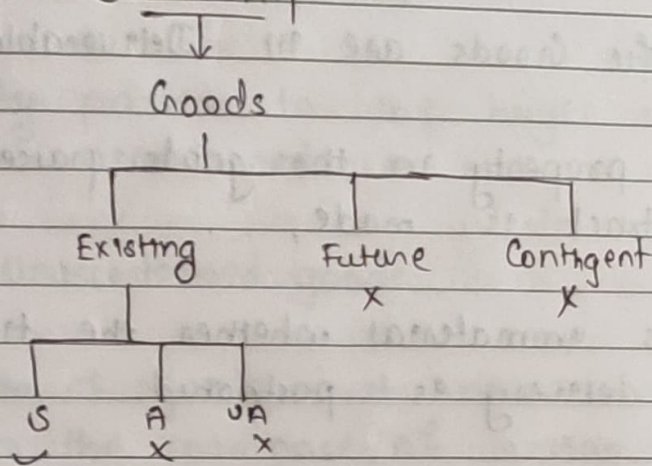 Goods
Existing Future Contingent
x x
S A UA
x x